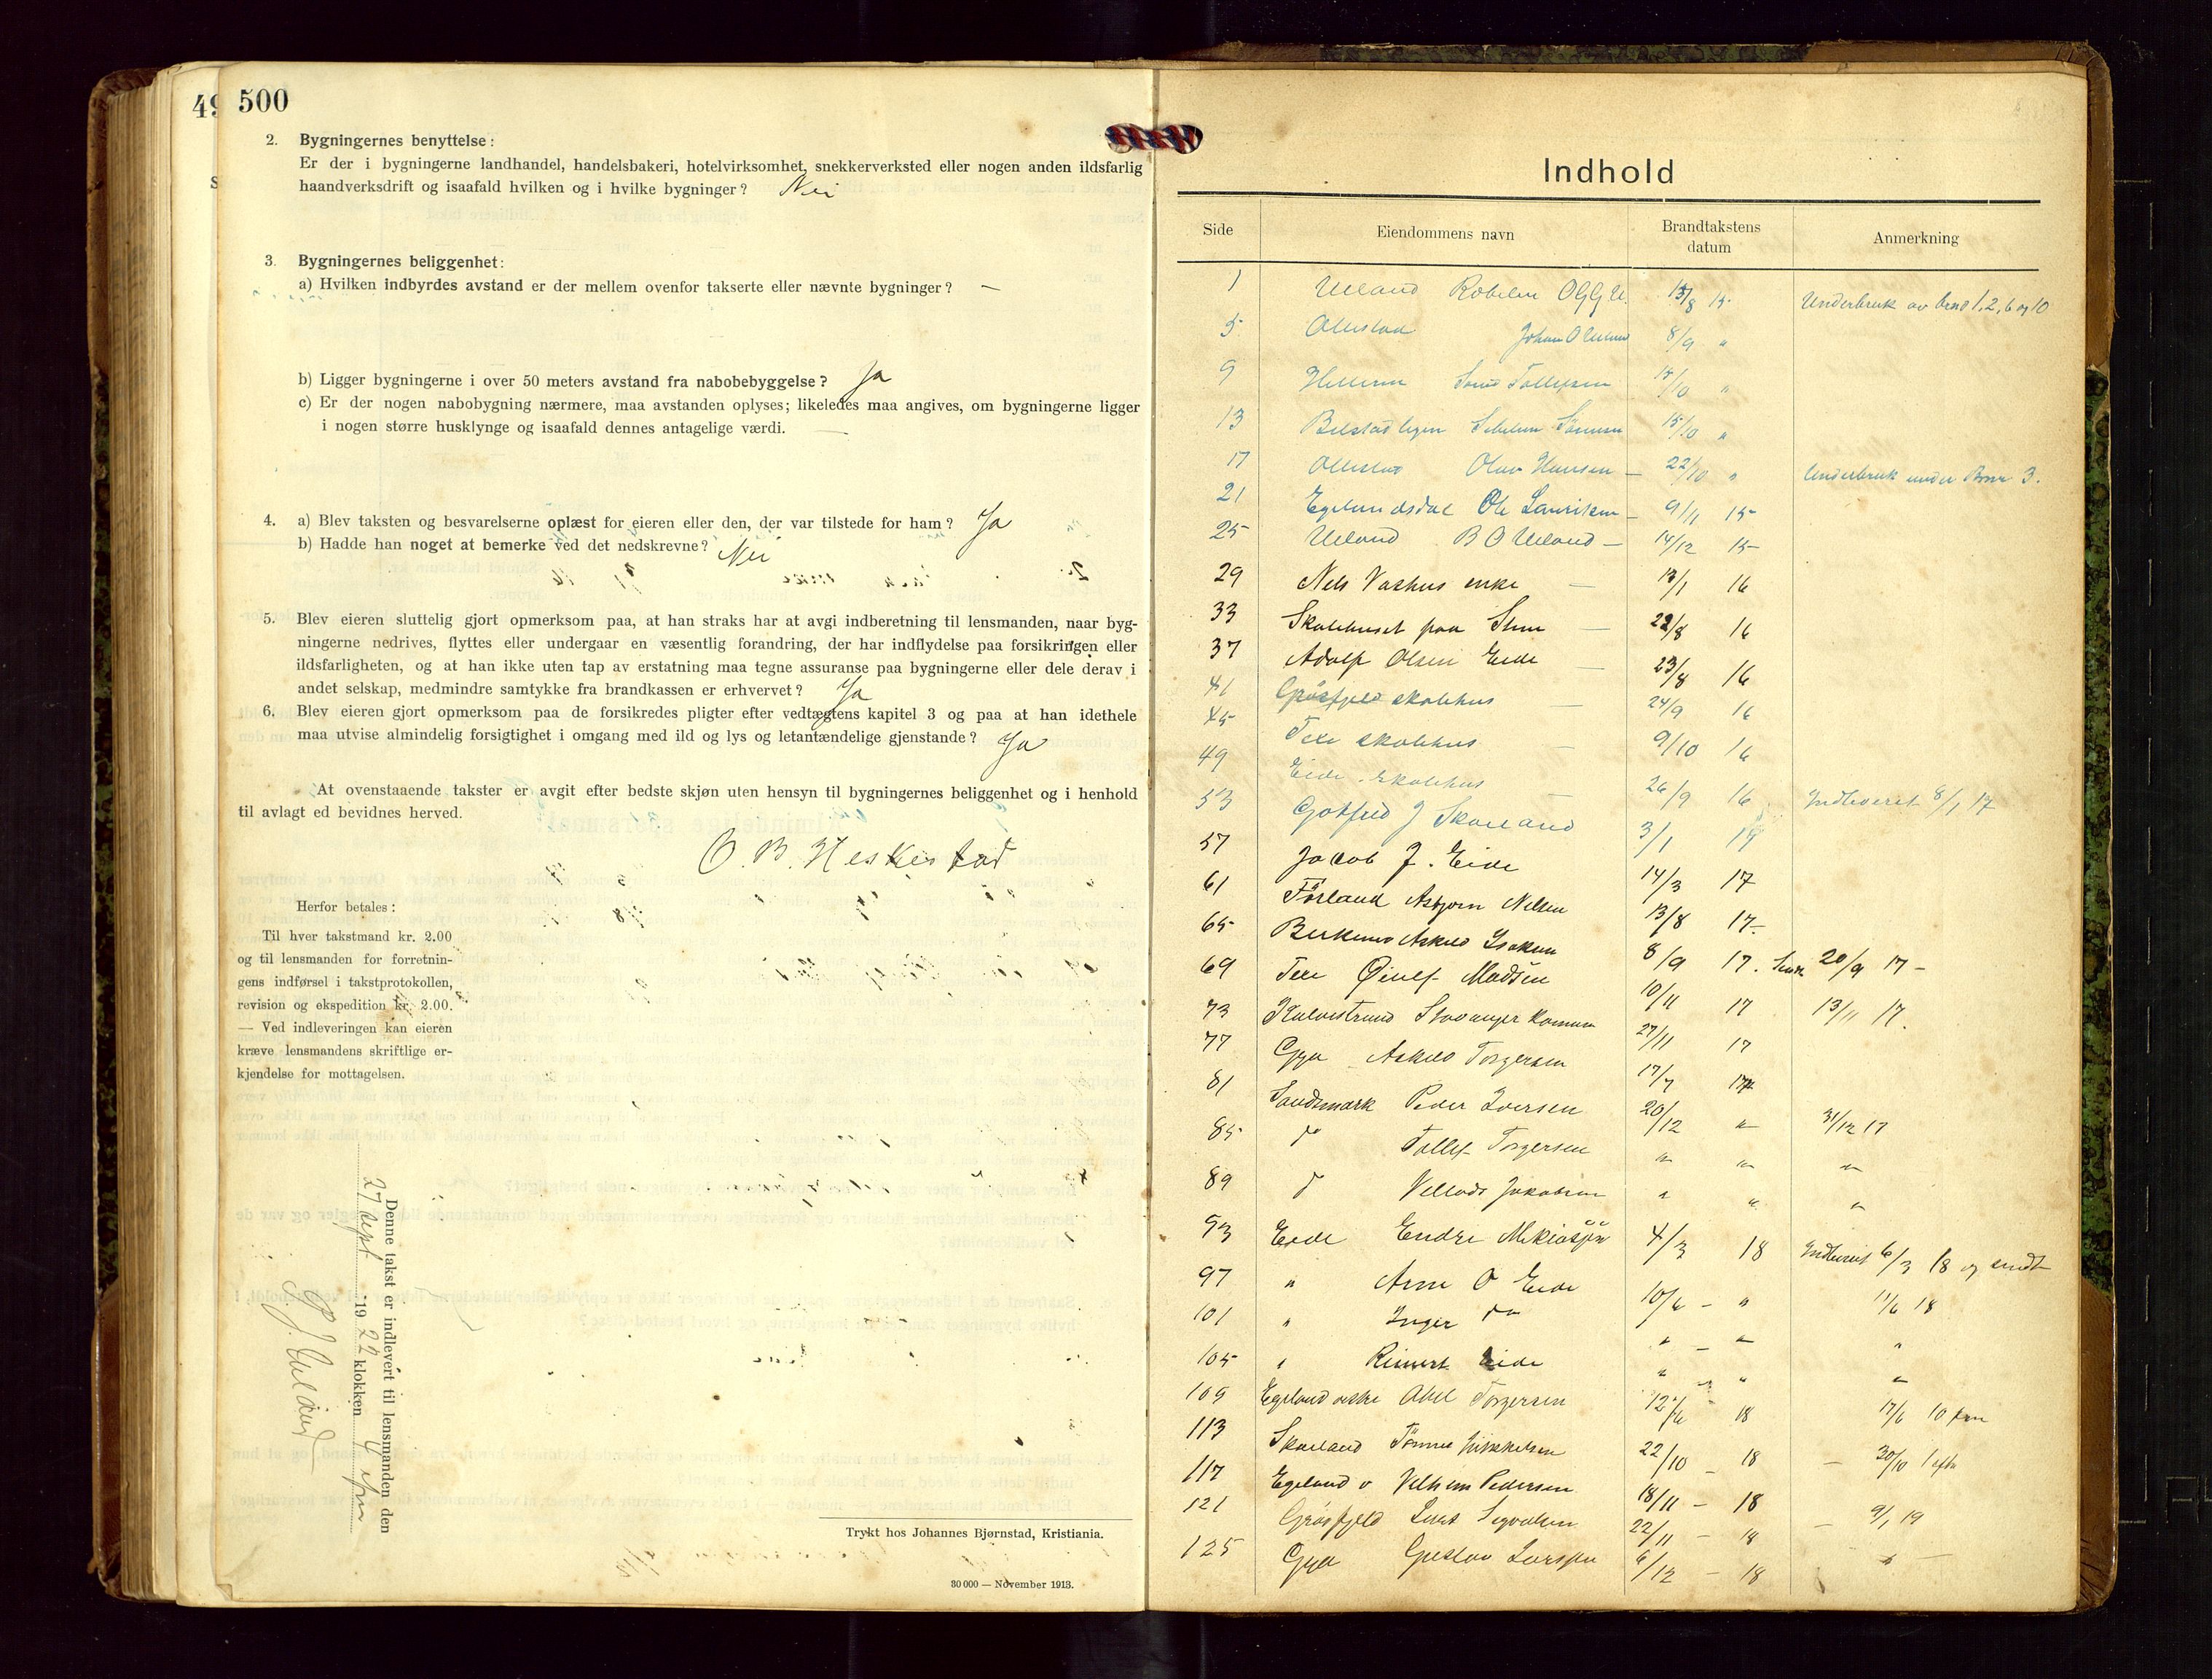 500
2. Bygningernes benyttelse:
Er der i bygningerne landhandel, handelsbakeri, hotelvirksomhet, snekkerverksted eller nogen anden ildsfarlig
haandverksdrift og isaafald hvilken og i hvilke bygninger? Nei
3. Bygningernes beliggenhet:
a) Hvilken indbyrdes avstand er der mellem ovenfor takserte eller nævnte bygninger? —
b) Ligger bygningerne i over 50 meters avstand fra nabobebyggelse? Ja
c) Er der nogen nabobygning nærmere, maa avstanden oplyses; likeledes maa angives, om bygningerne ligger
i nogen større husklynge og isaafald dennes antagelige værdi. —
4. a) Blev taksten og besvarelserne oplæst for eieren eller den, der var tilstede for ham? Ja
b) Hadde han noget at bemerke ved det nedskrevne? Nei
5. Blev eieren sluttelig gjort opmerksom paa, at han straks har at avgi indberetning til lensmanden, naar byg-
ningerne nedrives, flyttes eller undergaar en væsentlig forandring, der har indflydelse paa forsikringen eller
ildsfarligheten, og at han ikke uten tap av erstatning maa tegne assuranse paa bygningerne eller dele derav i
andet selskap, medmindre samtykke fra brandkassen er erhvervet? Ja
6. Blev eieren gjort opmerksom paa de forsikredes pligter efter vedtægtens kapitel 3 og paa at han idethele
maa utvise almindelig forsigtighet i omgang med ild og lys og letantændelige gjenstande? Ja
At ovenstaaende takster er avgit efter bedste skjøn uten hensyn til bygningernes beliggenhet og i henhold
til avlagt ed bevidnes herved.
O. B. Heskestad
Herfor betales:
Til hver takstmand kr. 2.00
og til lensmanden for forretnin-
gens indførsel i takstprotokollen,
revision og ekspedition kr. 2.00.
— Ved indleveringen kan eieren
kræve lensmandens skriftlige er-
kjendelse for mottagelsen.
Denne takst er indlevert til lensmanden den
27 sept 1922 klokken 4
Trykt hos Johannes Bjørnstad, Kristiania.
30 000 — November 1913.
Indhold
Side Eiendommens navn Brandtakstens datum Anmerkning
1 Ueland 15/8 15 Underbruk av bno 1, 2, 6 og 10
5 Ollestad Johan 8/9 "
9 Tollefsen 15/10 "
13 15/10 "
17 Ollestad Olav Hansen — 22/10 " Underbruk under Bnr 3.
21 Egelandsdal Ole Lauritsen — 9/11 15
25 Ueland B O Ueland — 14/12 15
29 Nels Vashus enke — 13/1 16
33 Skolehuset paa — 22/8 16
37 Adolf Olsen Eide — 23/8 16
41 Gråsfjeld skolehus — 24/9 16
45 Texe skolehus — 9/10 16
49 Eide skolehus — 26/9 16 Indleveret 8/1 17
53 Gotfred J Skarland 3/1 17
57 Jacob J. Eide 14/3 17
61 Førland Asbjørn Nelsen 13/8 17
65 Askild Isaksen 8/9 17. 20/9 17 —
69 Texe Øiulf Madsen 10/11 17 13/11 17.
73 Stavanger Komune 27/11 17
77 Gya Askild Torgersen 17/7 17
81 Sandsmark Peder Iversen 20/12 " 31/12 17
85 do Tollef Torgersen " " "
89 do Vellads Jakobsen " " "
93 Eide Endre 4/3 18 Indleveret 6/3 18 og sendt
97 " Arne O Eide 10/6 — " 11/6 18
101 " Inger do " — " "
105 " Reinert Eide " — " "
109 Egeland vestre Abel Torgersen 12/6 — 18 17/6 10 fm
113 Skarland Tønnes Mikkelsen 22/10 — 18 — 30/10 1 eftm
117 Egeland v Vilhelm Pedersen 18/11 — 18
121 Gråsfjeld Sigvaldsen 22/11 — 18 — 9/1 19
125 Gya Gustav 6/12 — 18 "